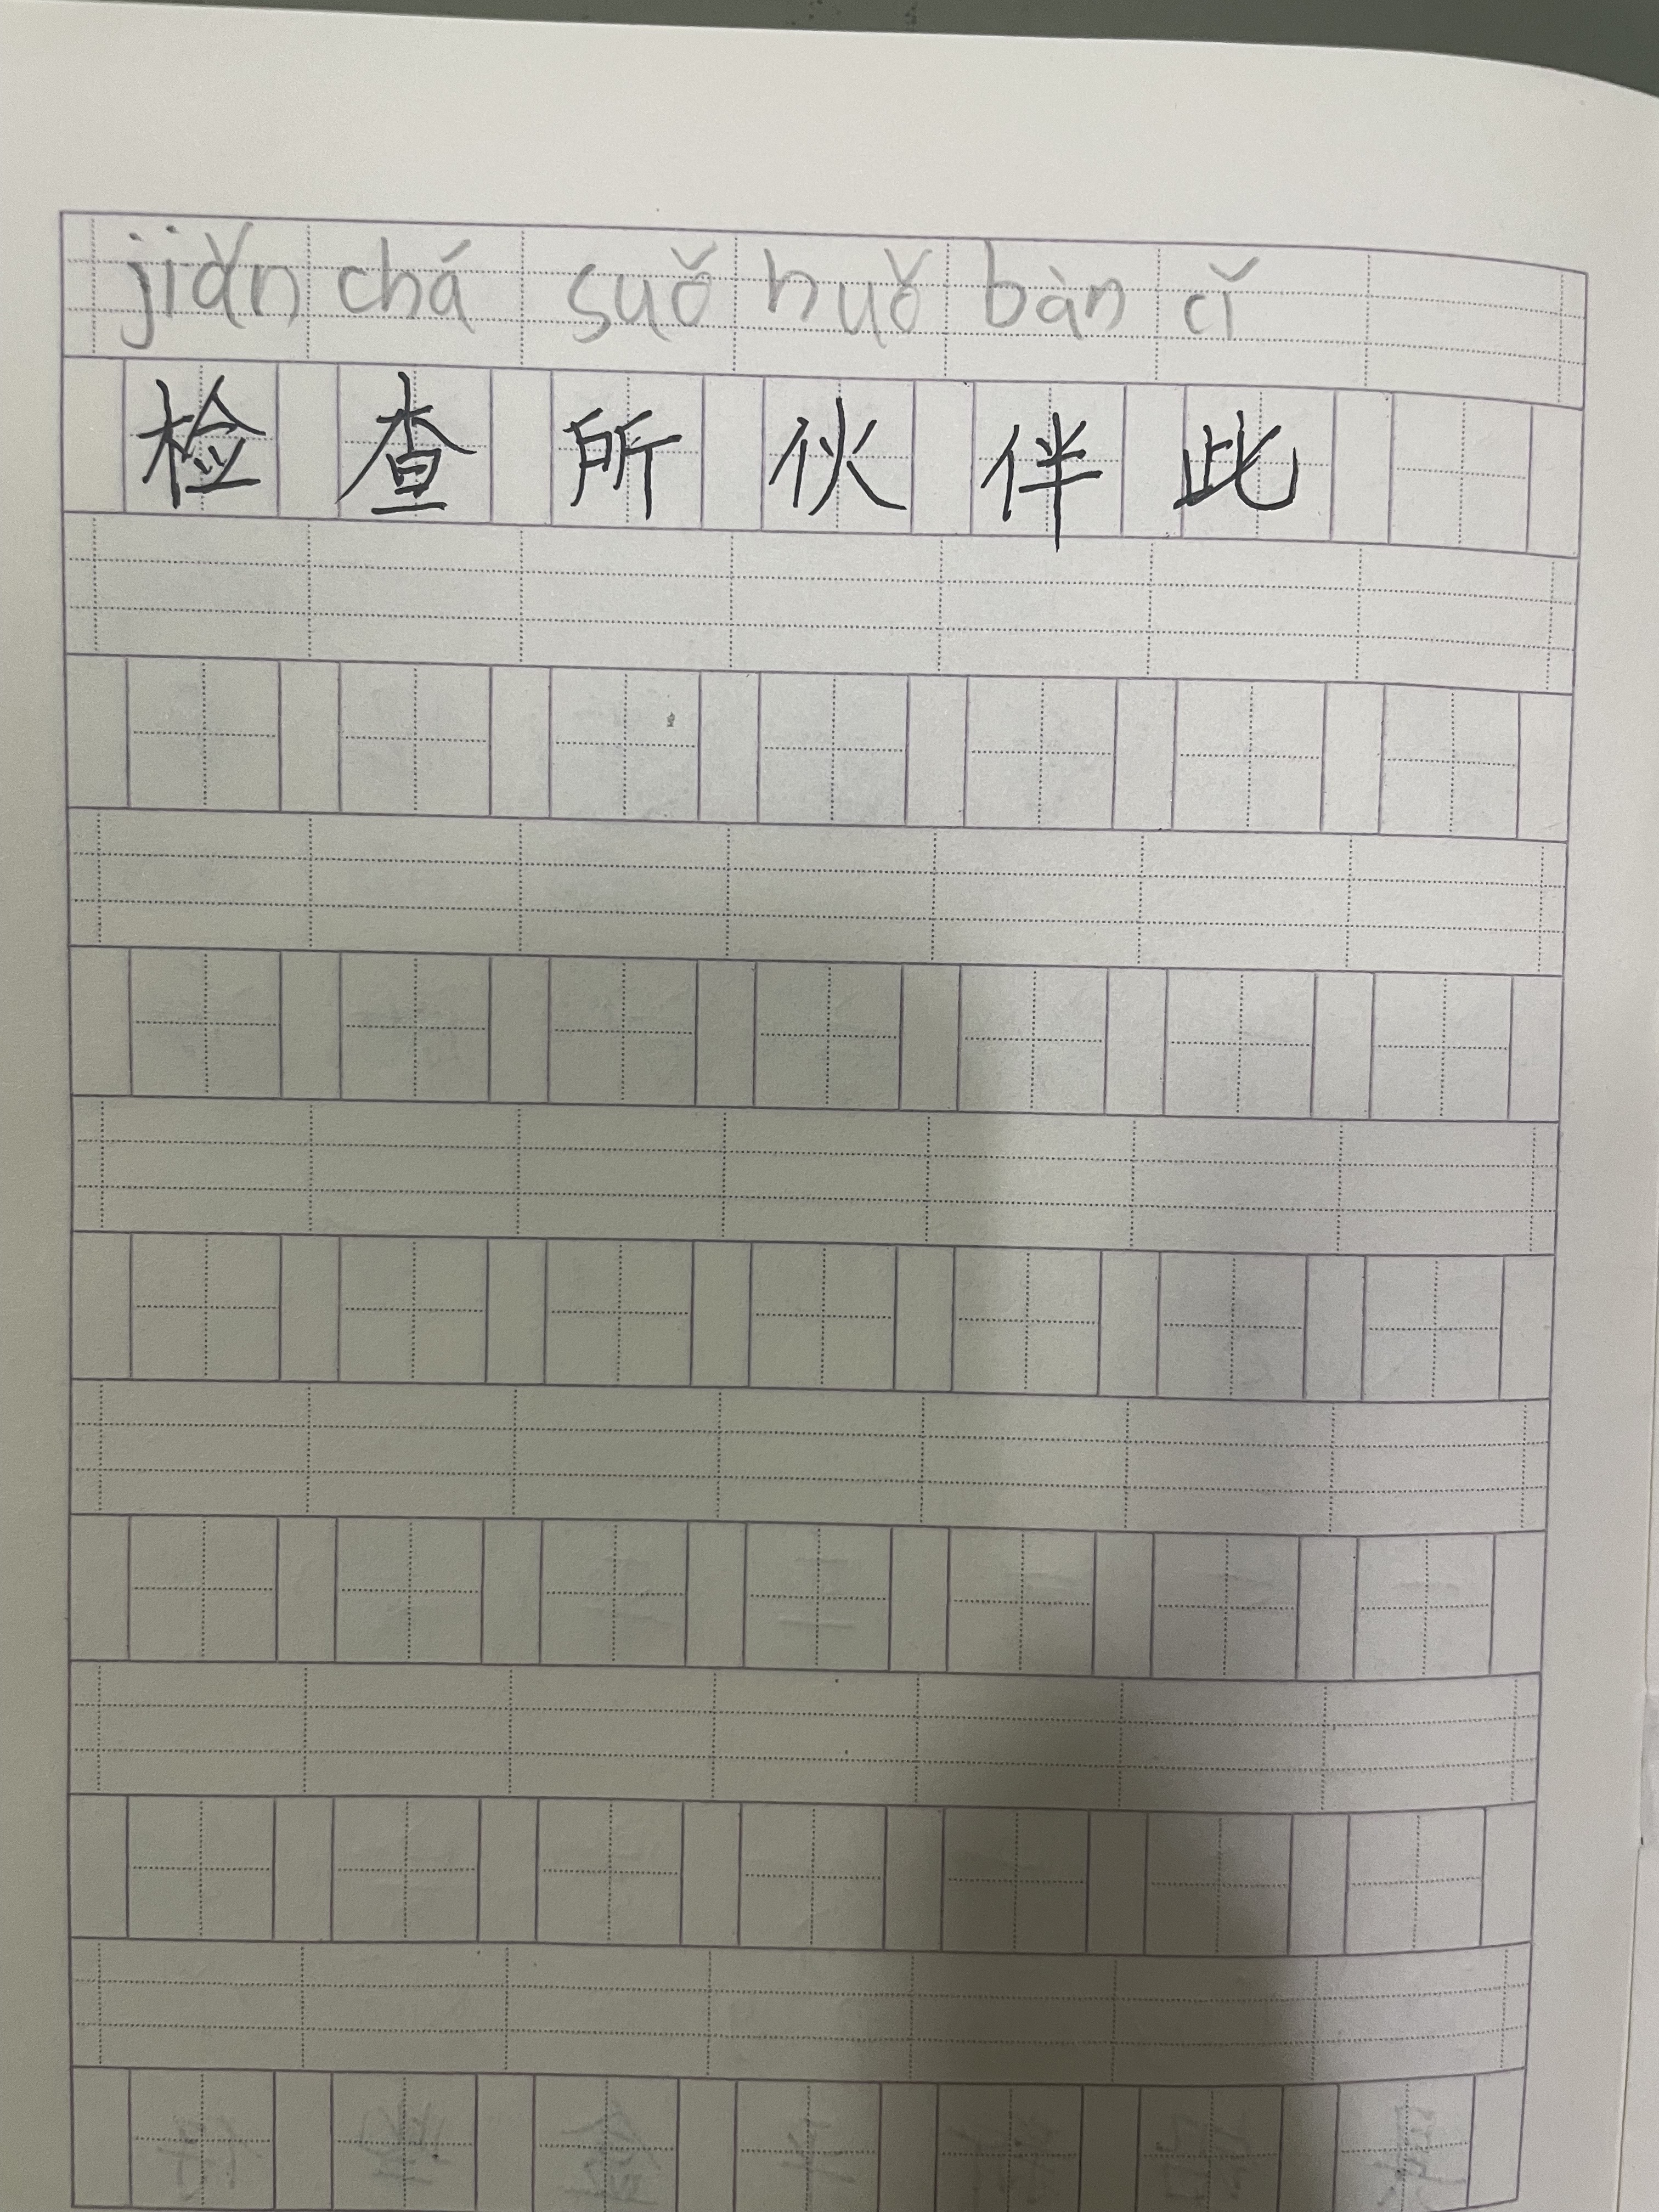 jiǎn chá suǒ huǒ bàn cǐ
检查所伙伴此